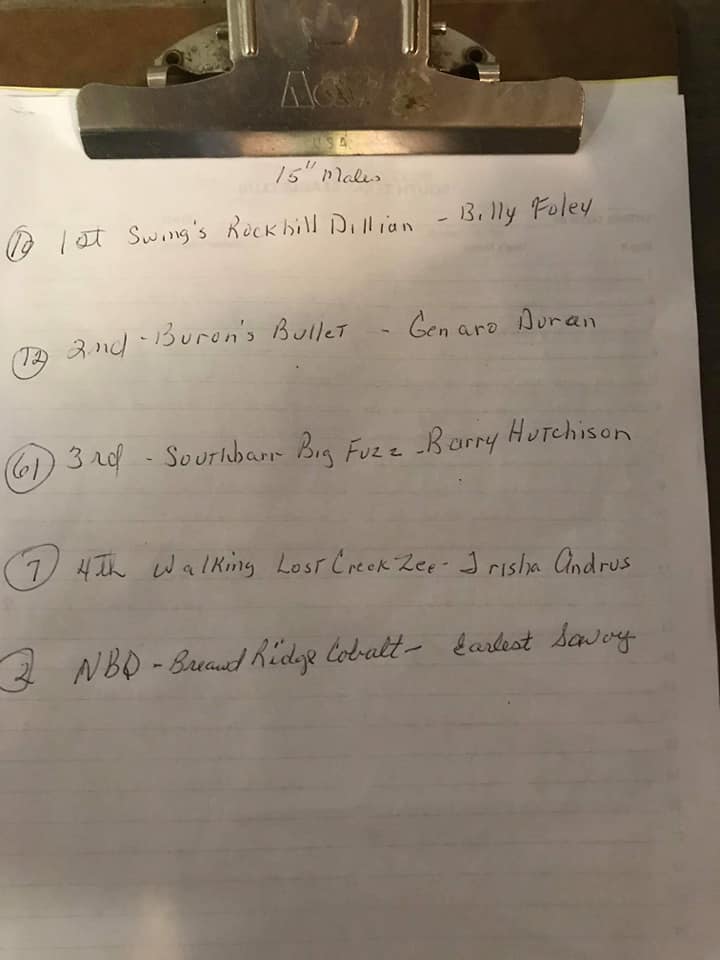 USA
15" Males
10 1st Swing's Rockhill Dillian - Billy Foley
12 2nd - Buron's Bullet - Genaro Duran
61 3rd - Southbarr Big Fuzz - Barry Hutchison
7 4th Walking Lost Creek Zee - Trisha Andrus
2 NBQ - Breaud Ridge Cobalt - Earlest Savoy